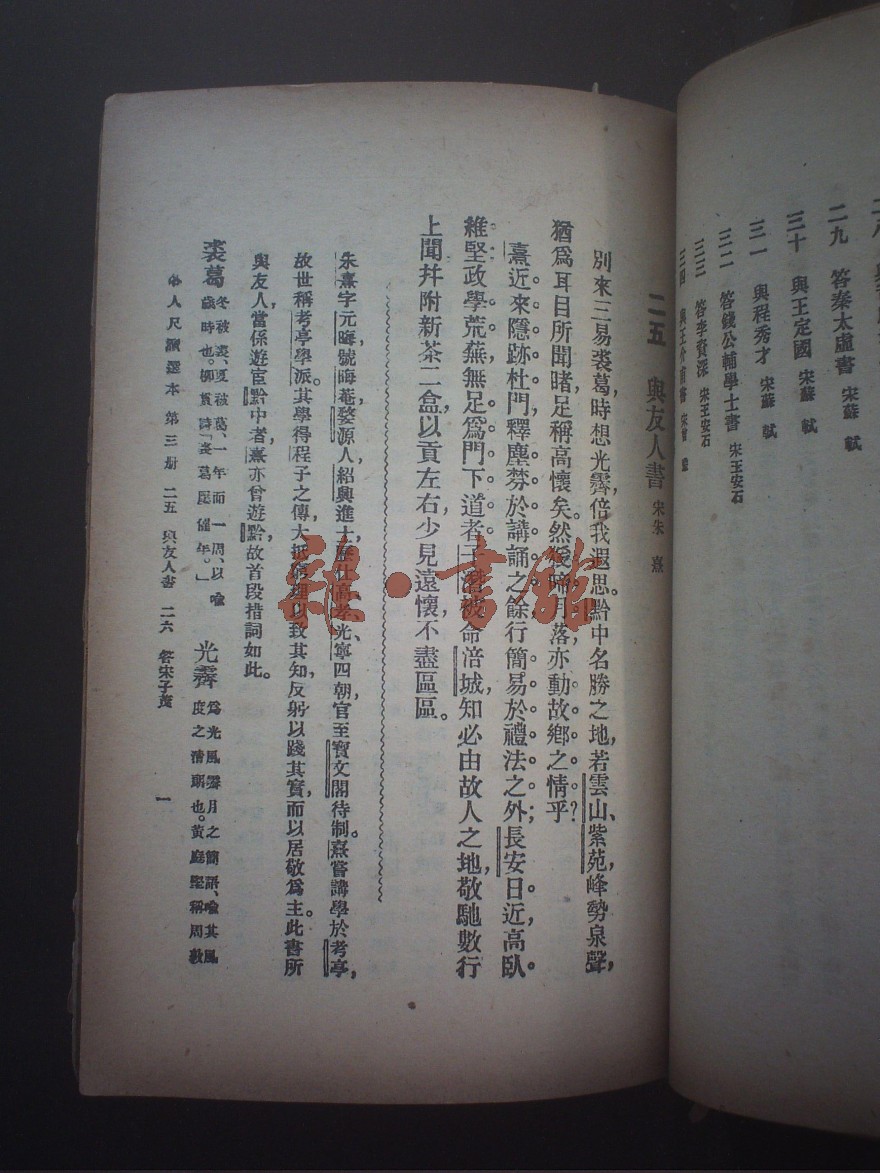 二九 答秦太虛書 宋蘇軾
三十 與王定國 宋蘇軾
三一 與程秀才 宋蘇軾
三二 答錢公輔學士書 宋王安石
三三 答李資深 宋王安石
三四 與王介甫書 宋曾鞏
二五 與友人書 宋朱熹
別來三易裘葛，時想光霽，倍我遐思。黔中名勝之地，若雲山、紫苑，峰勢泉聲，
猶爲耳目所聞睹，足稱高懷矣。然猨啼月落，亦動故鄉之情乎？
熹近來隱跡杜門，釋塵棼於講誦之餘，行簡易於禮法之外；長安日近，高臥
維堅，政學荒蕪，無足爲門下道者。王潛被命涪城，知必由故人之地，敬馳數行
上聞，幷附新茶二盒，以貢左右，少見遠懷，不盡區區。
朱熹字元晦，號晦菴，婺源人，紹興進士，歷仕高、孝、光、寧四朝，官至寶文閣待制。熹嘗講學於考亭，
故世稱考亭學派。其學得程子之傳，大抵窮理以致其知，反躬以踐其實，而以居敬爲主。此書所
與友人，當係遊宦黔中者，熹亦曾遊黔，故首段措詞如此。
裘葛 冬被裘，夏被葛，一年而一周，以喻歲時也。柳貫詩「裘葛屢催年。」 光霽 爲光風霽月之簡語，喻其風度之清朗也。黃庭堅稱周敦
名人尺牘選本 第三册 二五 與友人書 二六 答宋子貞 一
雜·書館